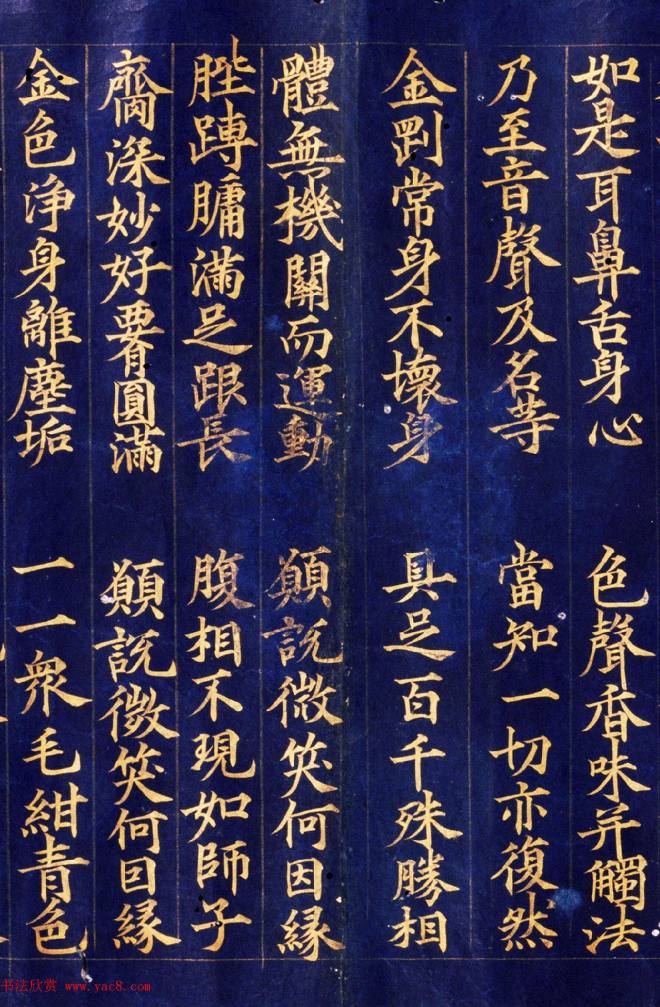 如是耳鼻舌身心　色聲香味并觸法
乃至音聲及名等　當知一切亦復然
金剛常身不壞身　具足百千殊勝相
體無機關而運動　願説微笑何因緣
䏶䏝膅滿足跟長　腹相不現如師子
齎深妙好𦝫圓滿　願説微笑何因緣
金色淨身離塵垢　一一眾毛紺青色
书法欣赏 www.yac8.com